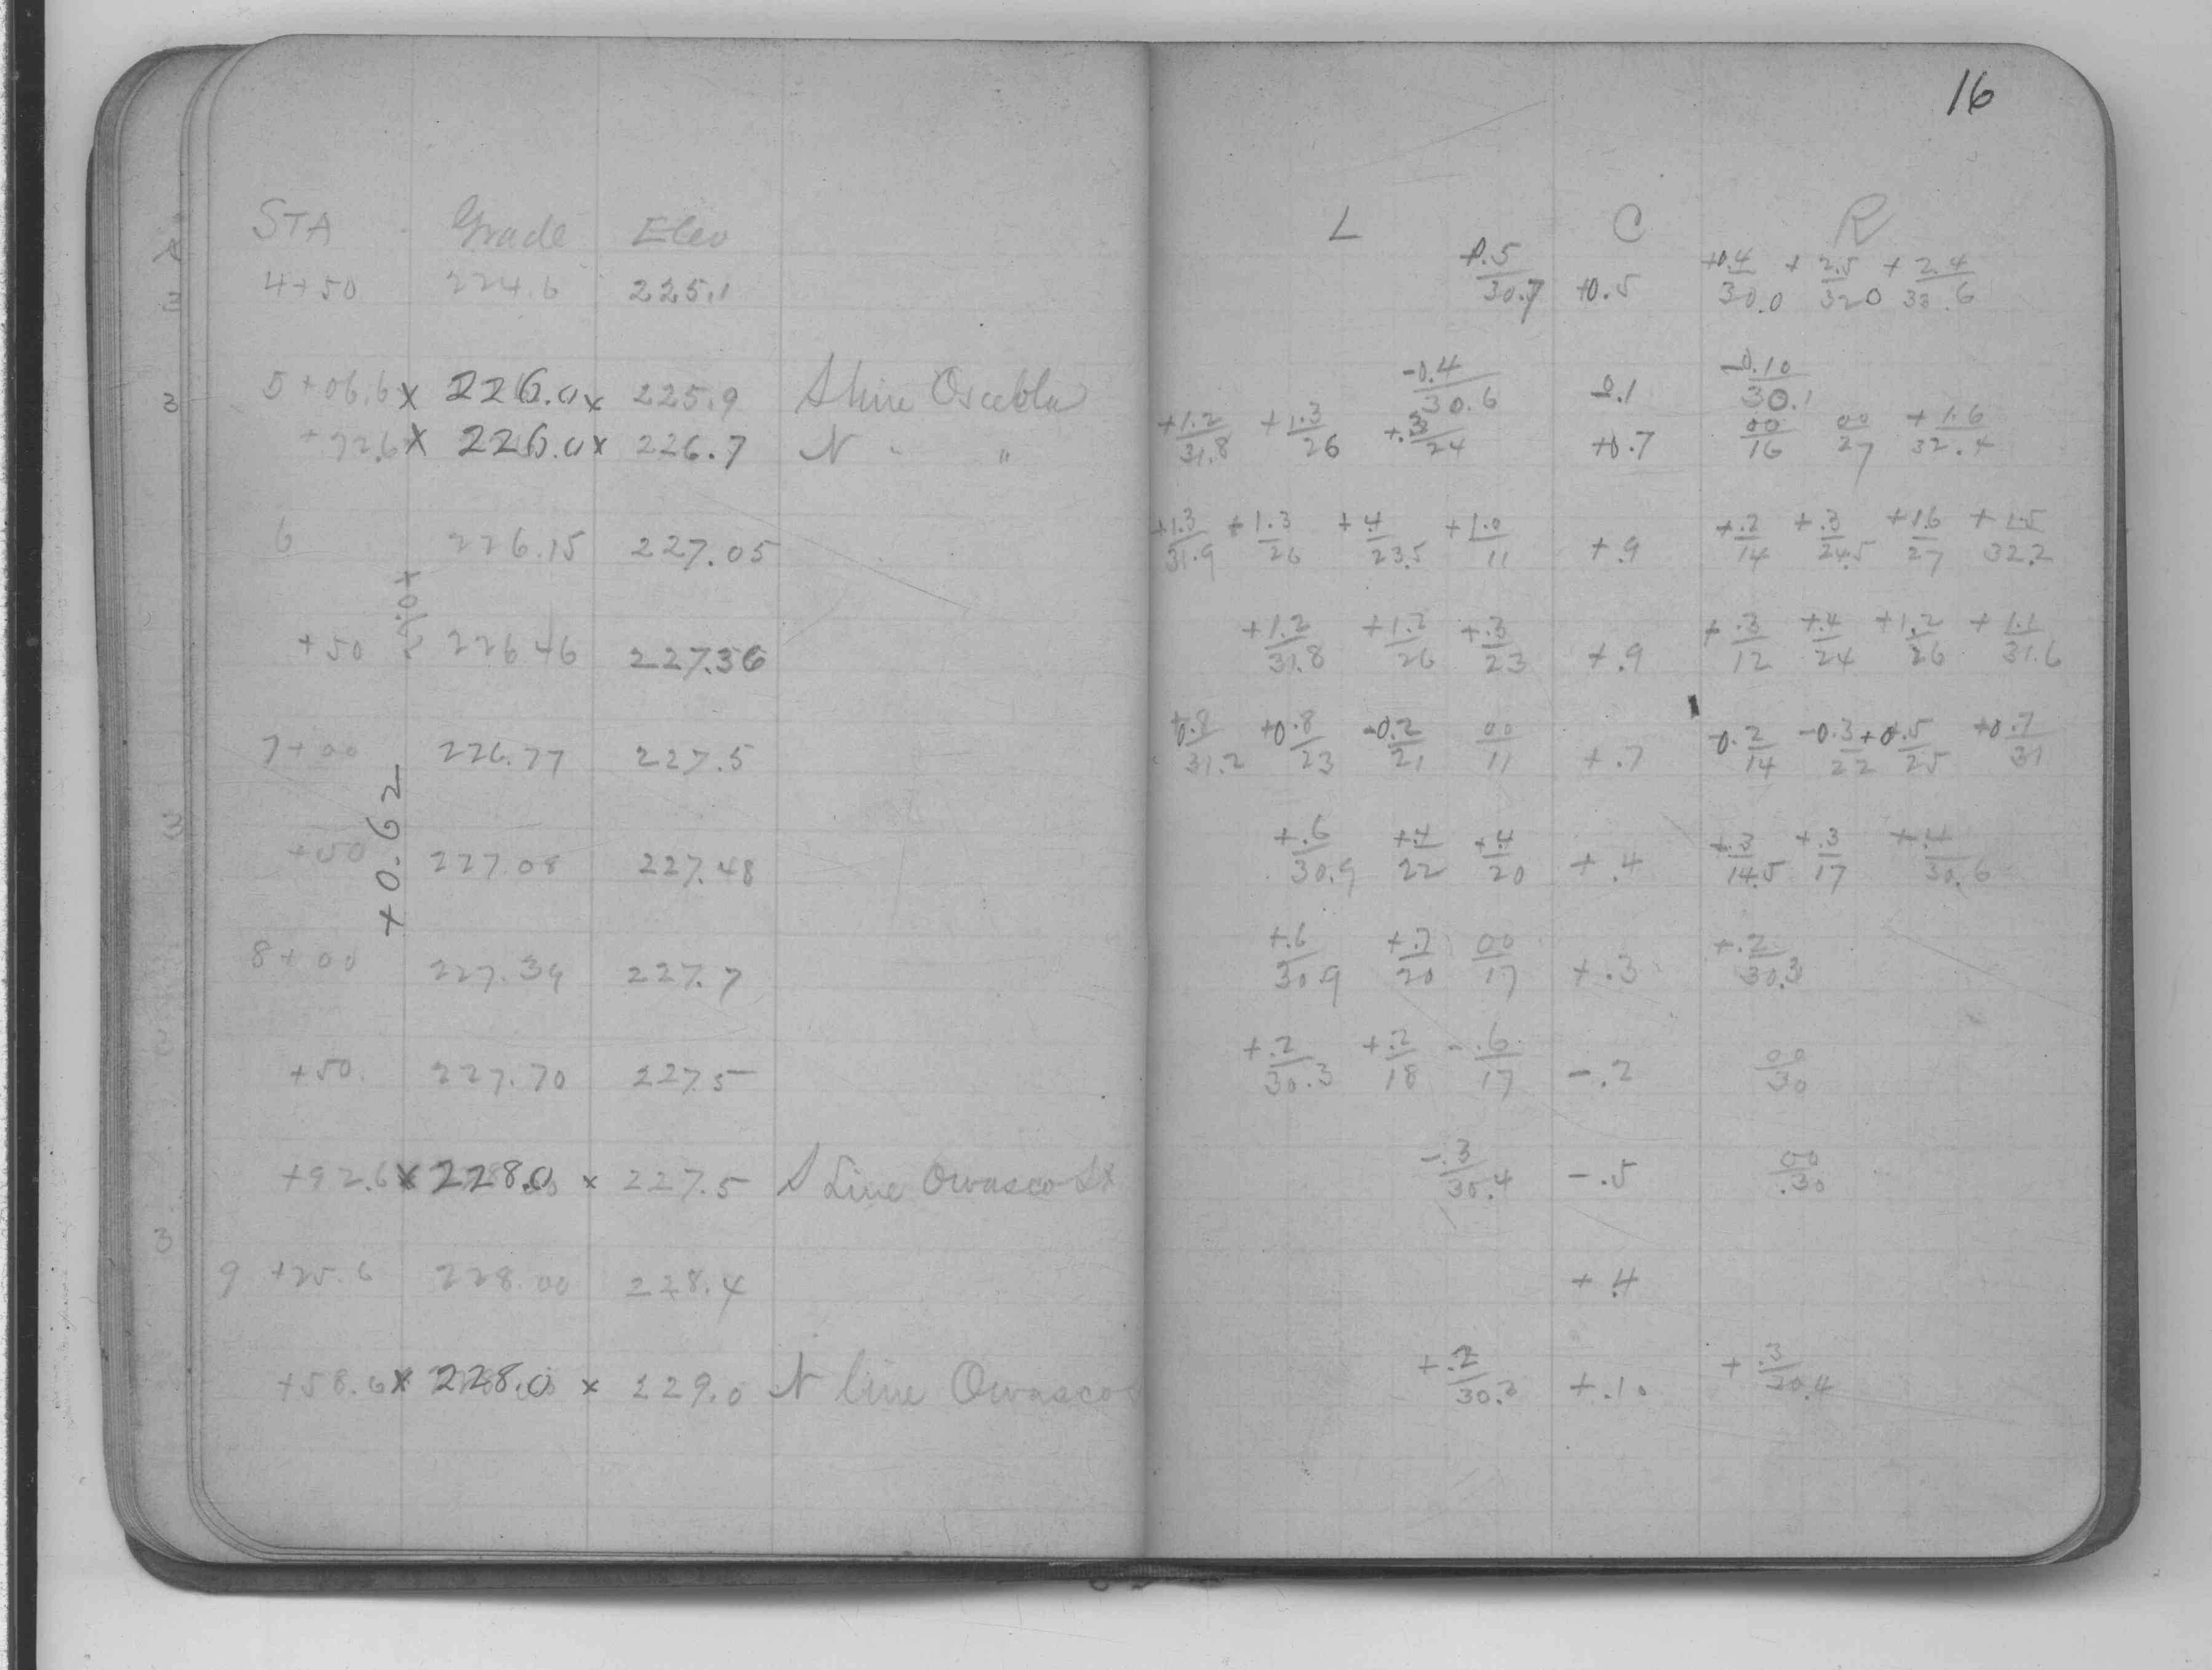 16
STA Grade Elev L C R
4+50 224.6 225.1 +0.5/30.7 +0.5 +0.4/30.0 +2.5/32.0 +2.4/33.6
5+06.6 x 226.0 x 225.9 S line Oscebla -0.4/30.6 -0.1 -0.10/30.1
+72.6 x 226.0 x 226.7 N " " +1.2/31.8 +1.3/26 +.3/24 +0.7 00/16 00/27 +1.6/32.4
6 226.15 227.05 +1.3/31.9 +1.3/26 +.4/23.5 +1.0/11 +.9 +.2/14 +.3/24.5 +1.6/27 +1.5/32.2
+50 226.46 227.36 +1.2/31.8 +1.2/26 +.3/23 +.9 +.3/12 +.4/24 +1.2/26 +1.1/31.6
7+00 226.77 227.5 +0.8/31.2 +0.8/23 -0.2/21 00/11 +.7 -0.2/14 -0.3/22 +0.5/25 +0.7/31
+0.62
+50 227.08 227.48 +.6/30.9 +.4/22 +.4/20 +.4 +.3/14.5 +.3/17 +.4/30.6
8+00 227.39 227.7 +.6/30.9 +.2/20 00/17 +.3 +.2/30.3
+50. 227.70 227.5 +.2/30.3 +.2/18 -.6/17 -.2 00/30
+92.6 x 228.0 x 227.5 S Line Owasco St -.3/30.4 -.5 00/30
9 +25.6 228.00 228.4 +.4
+58.6 x 228.0 x 229.0 N line Owasco +.2/30.3 +.10 +.3/30.4